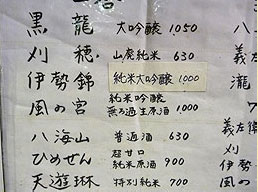 黒龍 大吟醸 1050
刈穂 山廃純米 630
伊勢錦 純米大吟醸 1,000
風の宮 純米吟醸 無ろ過生原酒 1,000
八海山 普通酒 630
ひめぜん 超甘口 純米原酒 900
天遊琳 特別純米 700
義左衛
瀧
風
刈
伊